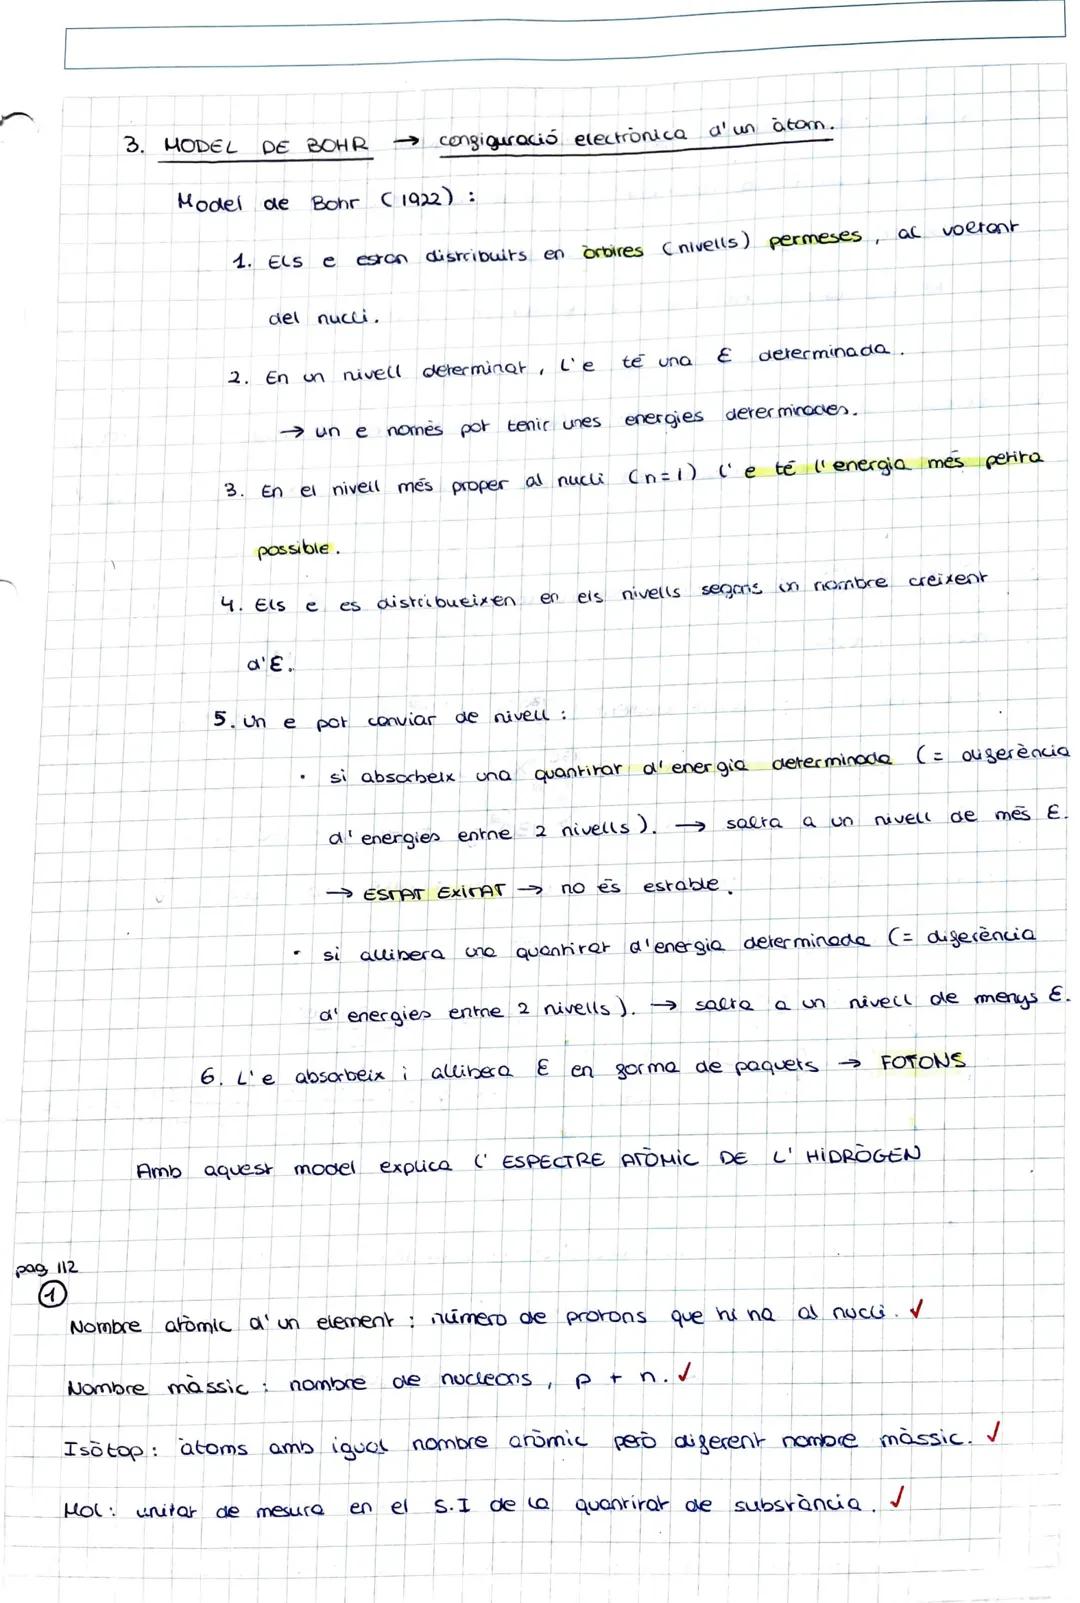 3. MODEL DE BOHR → configuració electrònica d'un àtom.
Model de Bohr (1922) :
1. Els e estan distribuits en òrbires (nivells) permeses, al voltant
del nucli.
2. En un nivell determinat, l'e té una E determinada.
→ un e només pot tenir unes energies determinades.
3. En el nivell més proper al nucli (n=1) l'e té l'energia més petita
possible.
4. Els e es distribueixen en els nivells segons un nombre creixent
d'E.
5. Un e pot canviar de nivell :
• si absorbeix una quantitat d'energia determinada (= diferència
d'energies entre 2 nivells). → salta a un nivell de més E.
→ ESTAT EXITAT → no és estable.
• si allibera una quantitat d'energia determinada (= diferència
d'energies entre 2 nivells). → salta a un nivell de menys E.
6. L'e absorbeix i allibera E en forma de paquets → FOTONS
Amb aquest model explica l'ESPECTRE ATÒMIC DE L'HIDRÒGEN
pag 112
1
Nombre atòmic d'un element : número de protons que hi ha al nucli. ✓
Nombre màssic : nombre de nucleons, p + n. ✓
Isòtop : àtoms amb igual nombre atòmic però diferent nombre màssic. ✓
Mol : unitat de mesura en el S.I de la quantitat de substància. ✓